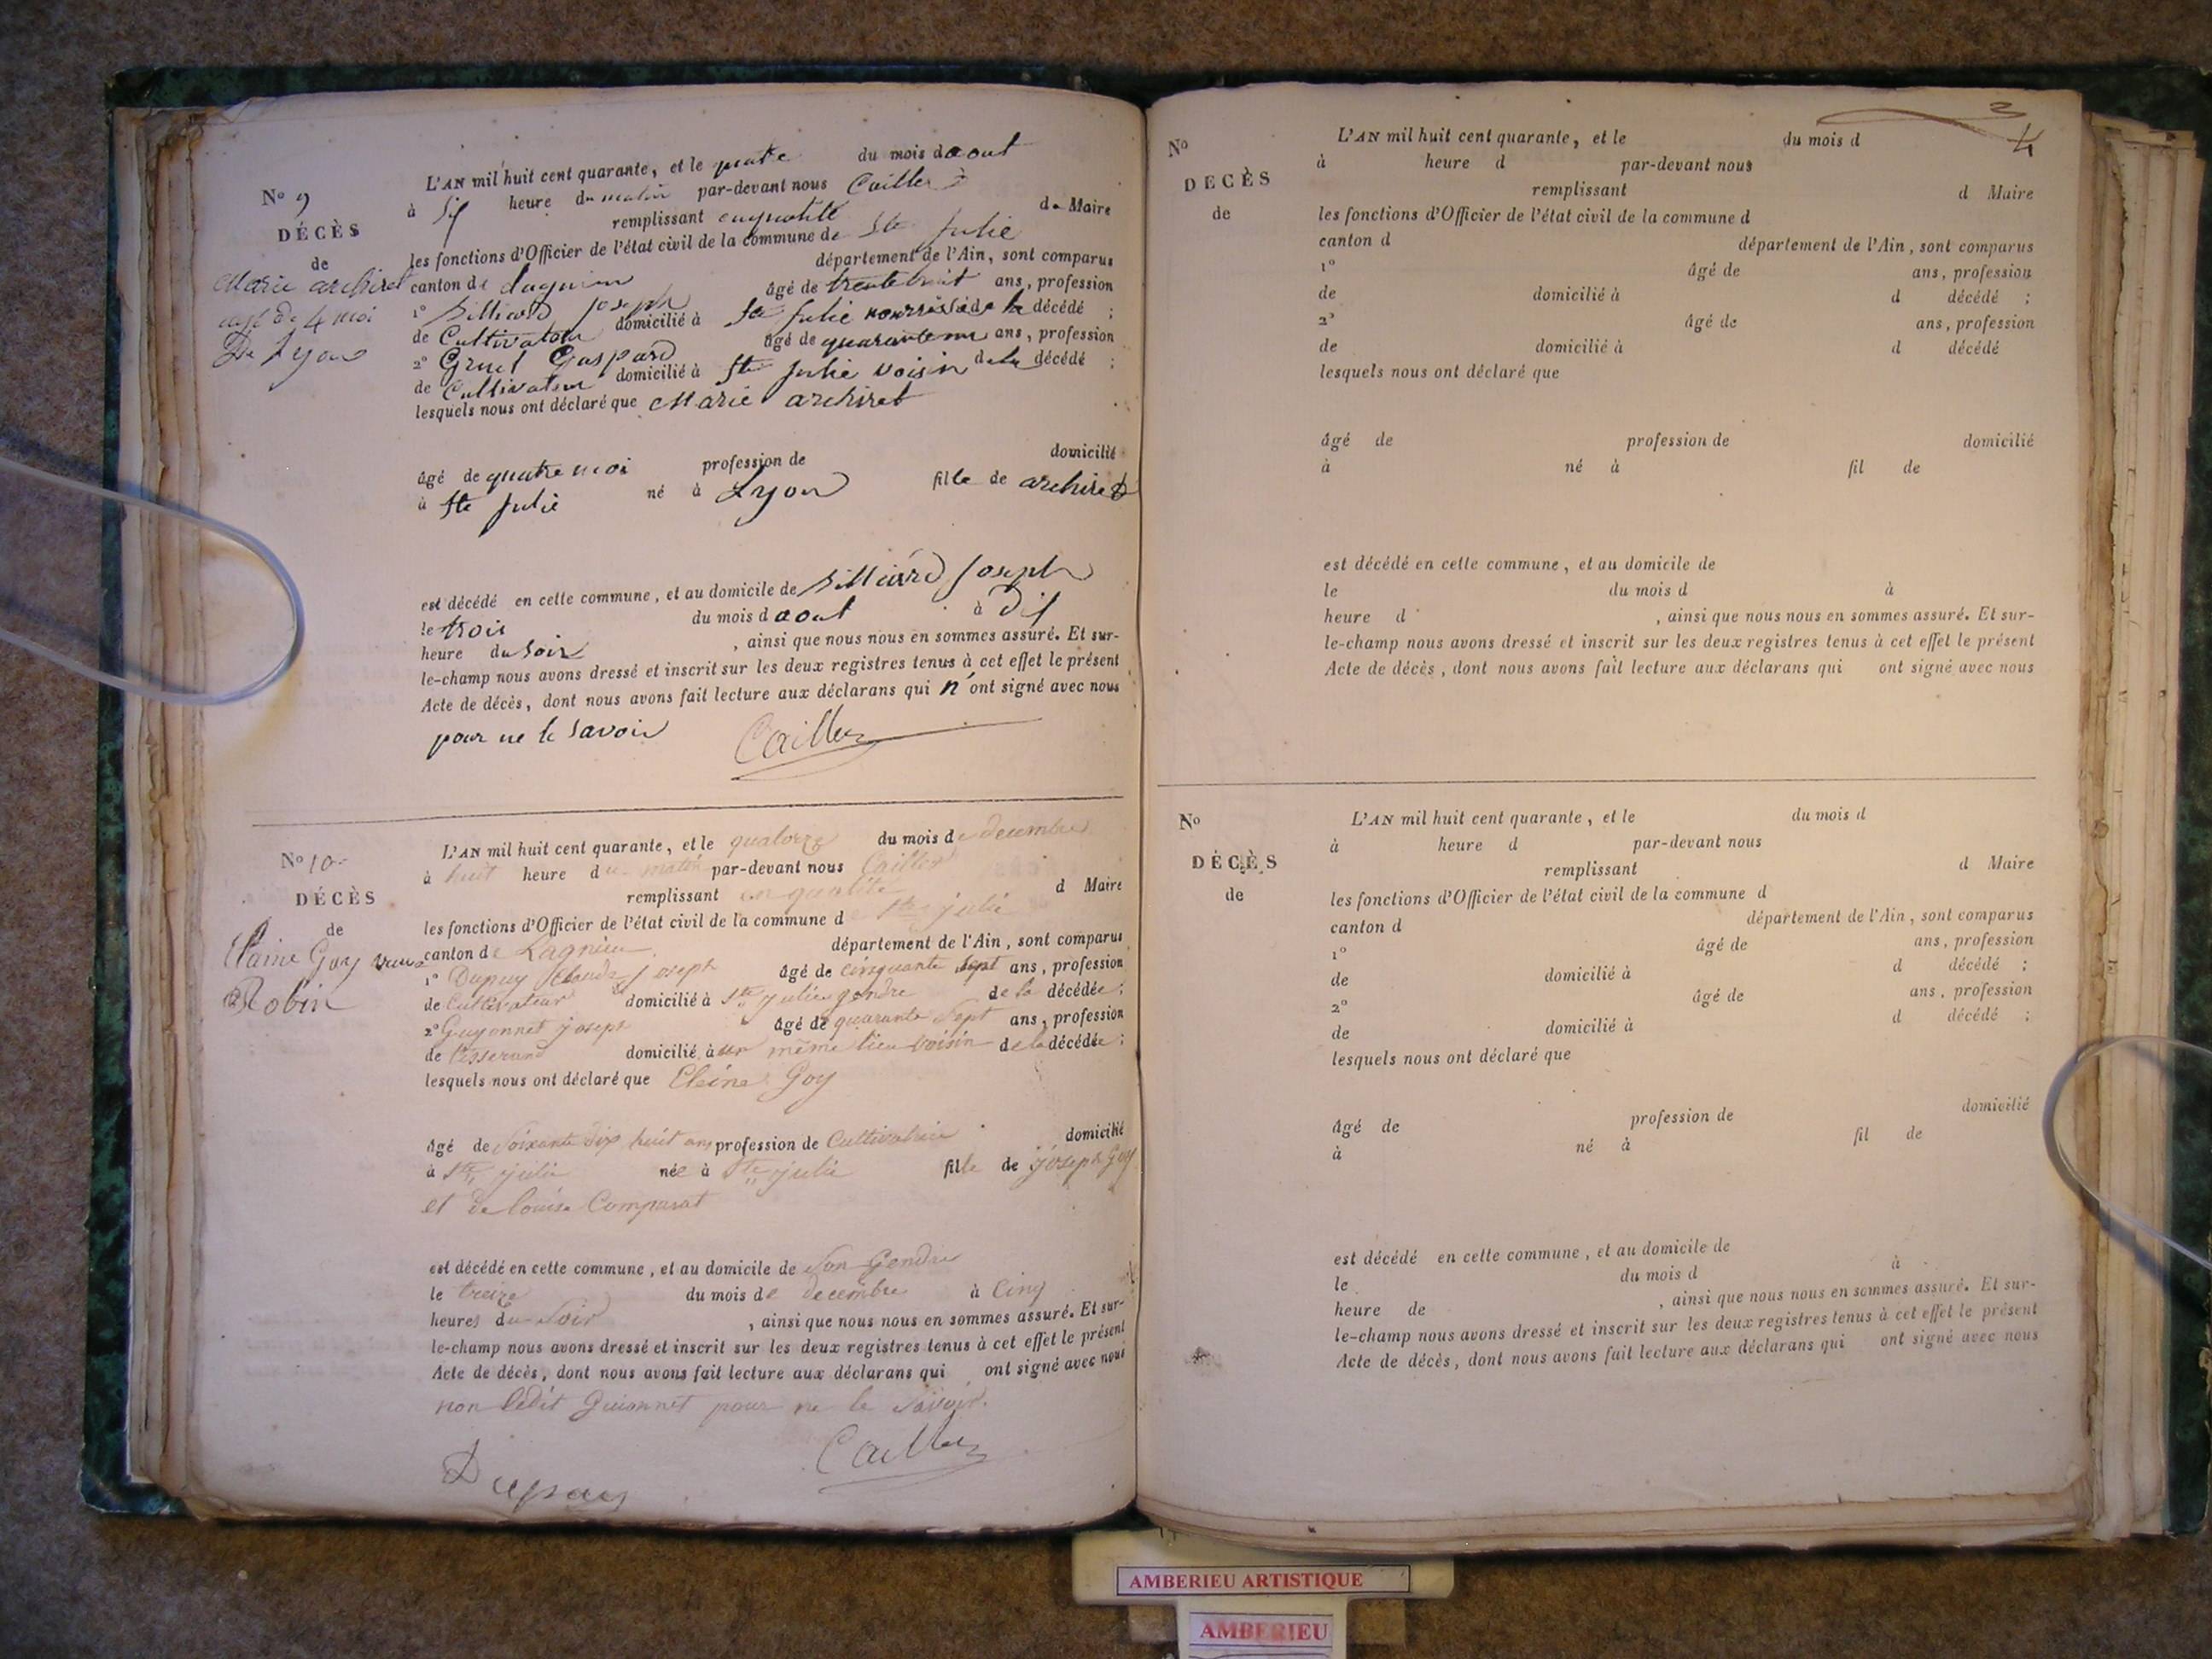 No 9
DÉCÈS
de
Marie archiret
agé de 4 moi
De Lyon
L'AN mil huit cent quarante, et le quatre du mois d aout
à heure du matin par-devant nous Cailler
remplissant en qualité de Maire
les fonctions d'Officier de l'état civil de la commune de Ste Julie
canton de lagnieu département de l'Ain, sont comparus
1o Joseph âgé de trente huit ans, profession
de Cultivateur domicilié à Ste Julie de la décédé ;
2o Gaspard âgé de ans, profession
de Cultivateur domicilié à Ste Julie voisin de la décédé ;
lesquels nous ont déclaré que Marie archiret
âgé de quatre moi profession de domicilié
à Ste Julie né à Lyon fille de archiret
est décédé en cette commune, et au domicile de Joseph
le trois du mois d aout à Dix
heure du Soir , ainsi que nous nous en sommes assuré. Et sur-
le-champ nous avons dressé et inscrit sur les deux registres tenus à cet effet le présent
Acte de décès, dont nous avons fait lecture aux déclarans qui n'ont signé avec nous
pour ne le savoir Cailler
No 10
DÉCÈS
de
Claine Goy veuve
Robin
L'AN mil huit cent quarante, et le quatorze du mois de decembre
à huit heure du matin par-devant nous Cailler
remplissant en qualité d Maire
les fonctions d'Officier de l'état civil de la commune de Ste julie
canton de Lagnieu département de l'Ain, sont comparus
1o Dupuy Claude Joseph âgé de cinquante sept ans, profession
de Cultivateur domicilié à Ste julie gendre de la décédée ;
2o Guyonnet joseph âgé de quarante Sept ans, profession
de tisserand domicilié au même lieu voisin de la décédée ;
lesquels nous ont déclaré que Cleine Goy
âgé de Soixante dix huit ans profession de Cultivatrice domicilié
à Ste julie née à Ste julie fille de joseph Goy
et de louise Comparat
est décédé en cette commune, et au domicile de Son Gendre
le treize du mois de decembre à Cinq
heures du Soir , ainsi que nous nous en sommes assuré. Et sur-
le-champ nous avons dressé et inscrit sur les deux registres tenus à cet effet le présent
Acte de décès, dont nous avons fait lecture aux déclarans qui ont signé avec nous
non ledit Guionnet pour ne le Savoir.
Cailler
Dupuy
No
DECÈS
de
L'AN mil huit cent quarante, et le du mois d
à heure d par-devant nous
remplissant d Maire
les fonctions d'Officier de l'état civil de la commune d
canton d département de l'Ain, sont comparus
1o âgé de ans, profession
de domicilié à d décédé ;
2o âgé de ans, profession
de domicilié à d décédé
lesquels nous ont déclaré que
âgé de profession de domicilié
à né à fil de
est décédé en cette commune, et au domicile de
le du mois d à
heure d , ainsi que nous nous en sommes assuré. Et sur-
le-champ nous avons dressé et inscrit sur les deux registres tenus à cet effet le présent
Acte de décès, dont nous avons fait lecture aux déclarans qui ont signé avec nous
No
DÉCÈS
de
L'AN mil huit cent quarante, et le du mois d
à heure d par-devant nous
remplissant d Maire
les fonctions d'Officier de l'état civil de la commune d
canton d département de l'Ain, sont comparus
1o âgé de ans, profession
de domicilié à d décédé ;
2o âgé de ans, profession
de domicilié à d décédé ;
lesquels nous ont déclaré que
âgé de profession de domicilié
à né à fil de
est décédé en cette commune, et au domicile de
le du mois d à
heure de , ainsi que nous nous en sommes assuré. Et sur-
le-champ nous avons dressé et inscrit sur les deux registres tenus à cet effet le présent
Acte de décès, dont nous avons fait lecture aux déclarans qui ont signé avec nous
AMBERIEU ARTISTIQUE
AMBERIEU